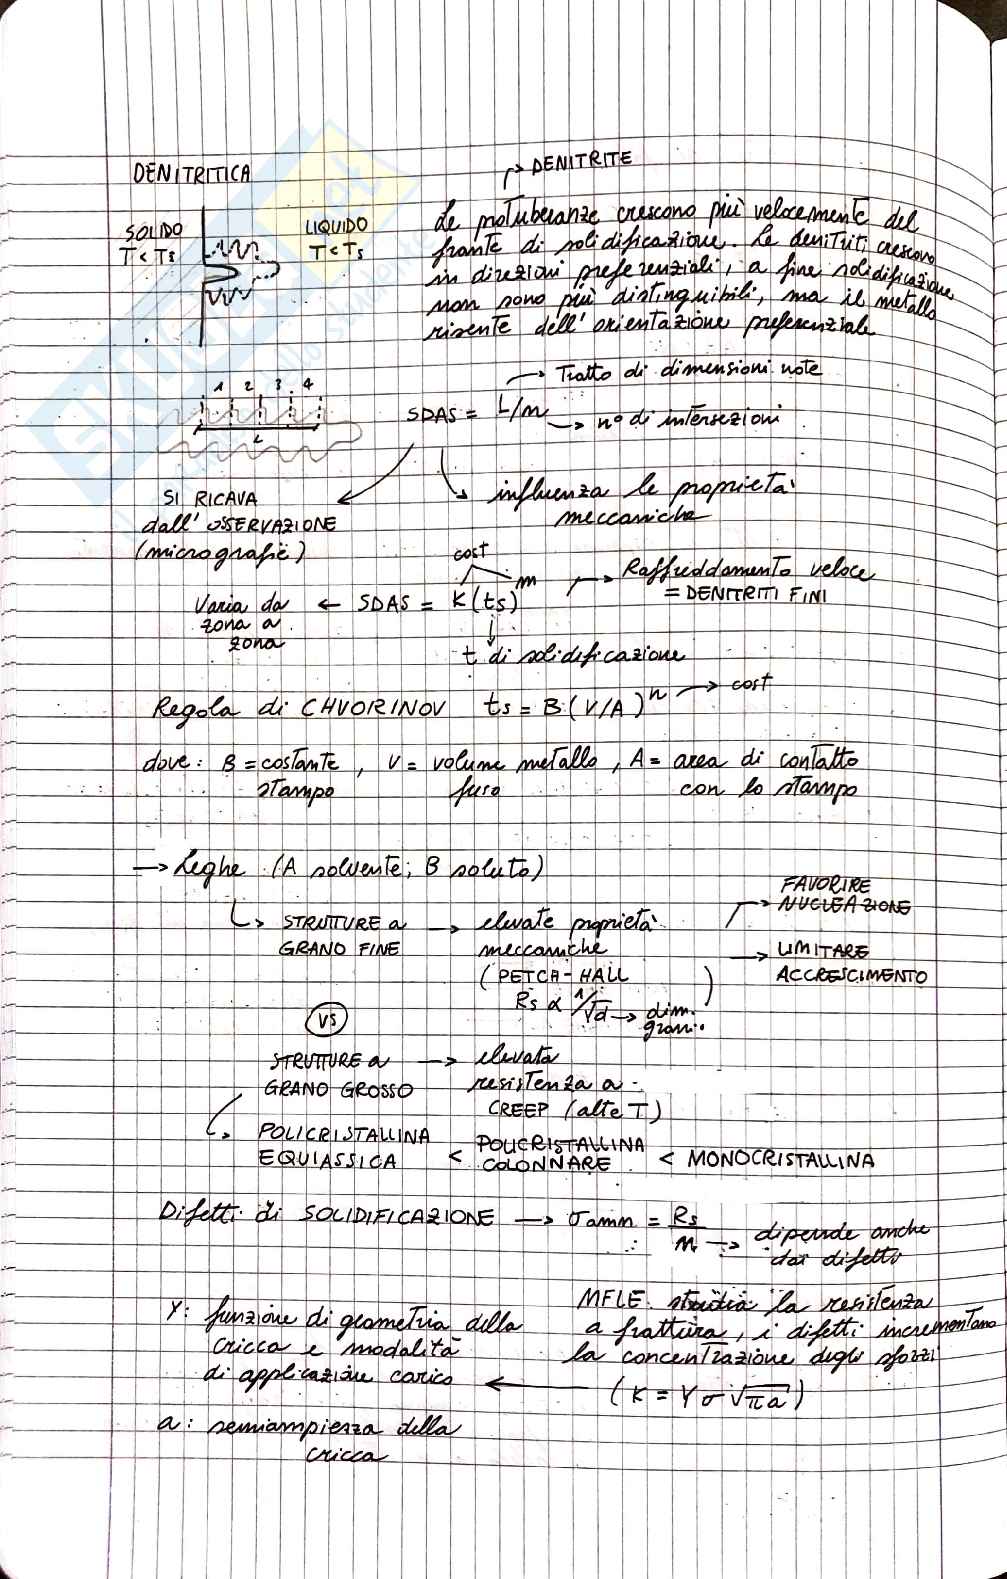 DENITRITICA
→ DENITRITE
SOLIDO
T < Ts
LIQUIDO
T < Ts
Le protuberanze crescono più velocemente del
fronte di solidificazione. Le denitriti crescono
in direzioni preferenziali, a fine solidificazione
non sono più distinguibili, ma il metallo
risente dell'orientazione preferenziale
1 2 3 4
L
→ Tratto di dimensioni note
SDAS = L/n → n° di intersezioni
SI RICAVA
dall'OSSERVAZIONE
(micrografie)
influenza le proprietà
meccaniche
cost
Varia da
zona a
zona
← SDAS = K(ts)^m
→ Raffreddamento veloce
= DENITRITI FINI
t di solidificazione
Regola di CHVORINOV ts = B(V/A)^n → cost
dove: B = costante , V = volume metallo , A = area di contatto
stampo fuso con lo stampo
→ Leghe (A solvente; B soluto)
↳ STRUTTURE a
GRANO FINE
→ elevate proprietà
meccaniche
(PETCH-HALL
Rs ∝ 1/√d → dim.
grani)
→ FAVORIRE
NUCLEAZIONE
→ LIMITARE
ACCRESCIMENTO
VS
STRUTTURE a
GRANO GROSSO
→ elevata
resistenza a
CREEP (alte T)
↳ POLICRISTALLINA
EQUIASSICA
< POLICRISTALLINA
COLONNARE
< MONOCRISTALLINA
Difetti di SOLIDIFICAZIONE → σamm = Rs/n → dipende anche
dai difetto
MFLE studia la resistenza
a frattura, i difetti incrementano
la concentrazione degli sforzi
(K = Yσ√πa)
Y: funzione di geometria della
cricca e modalità
di applicazione carico ←
a: semiampiezza della
cricca